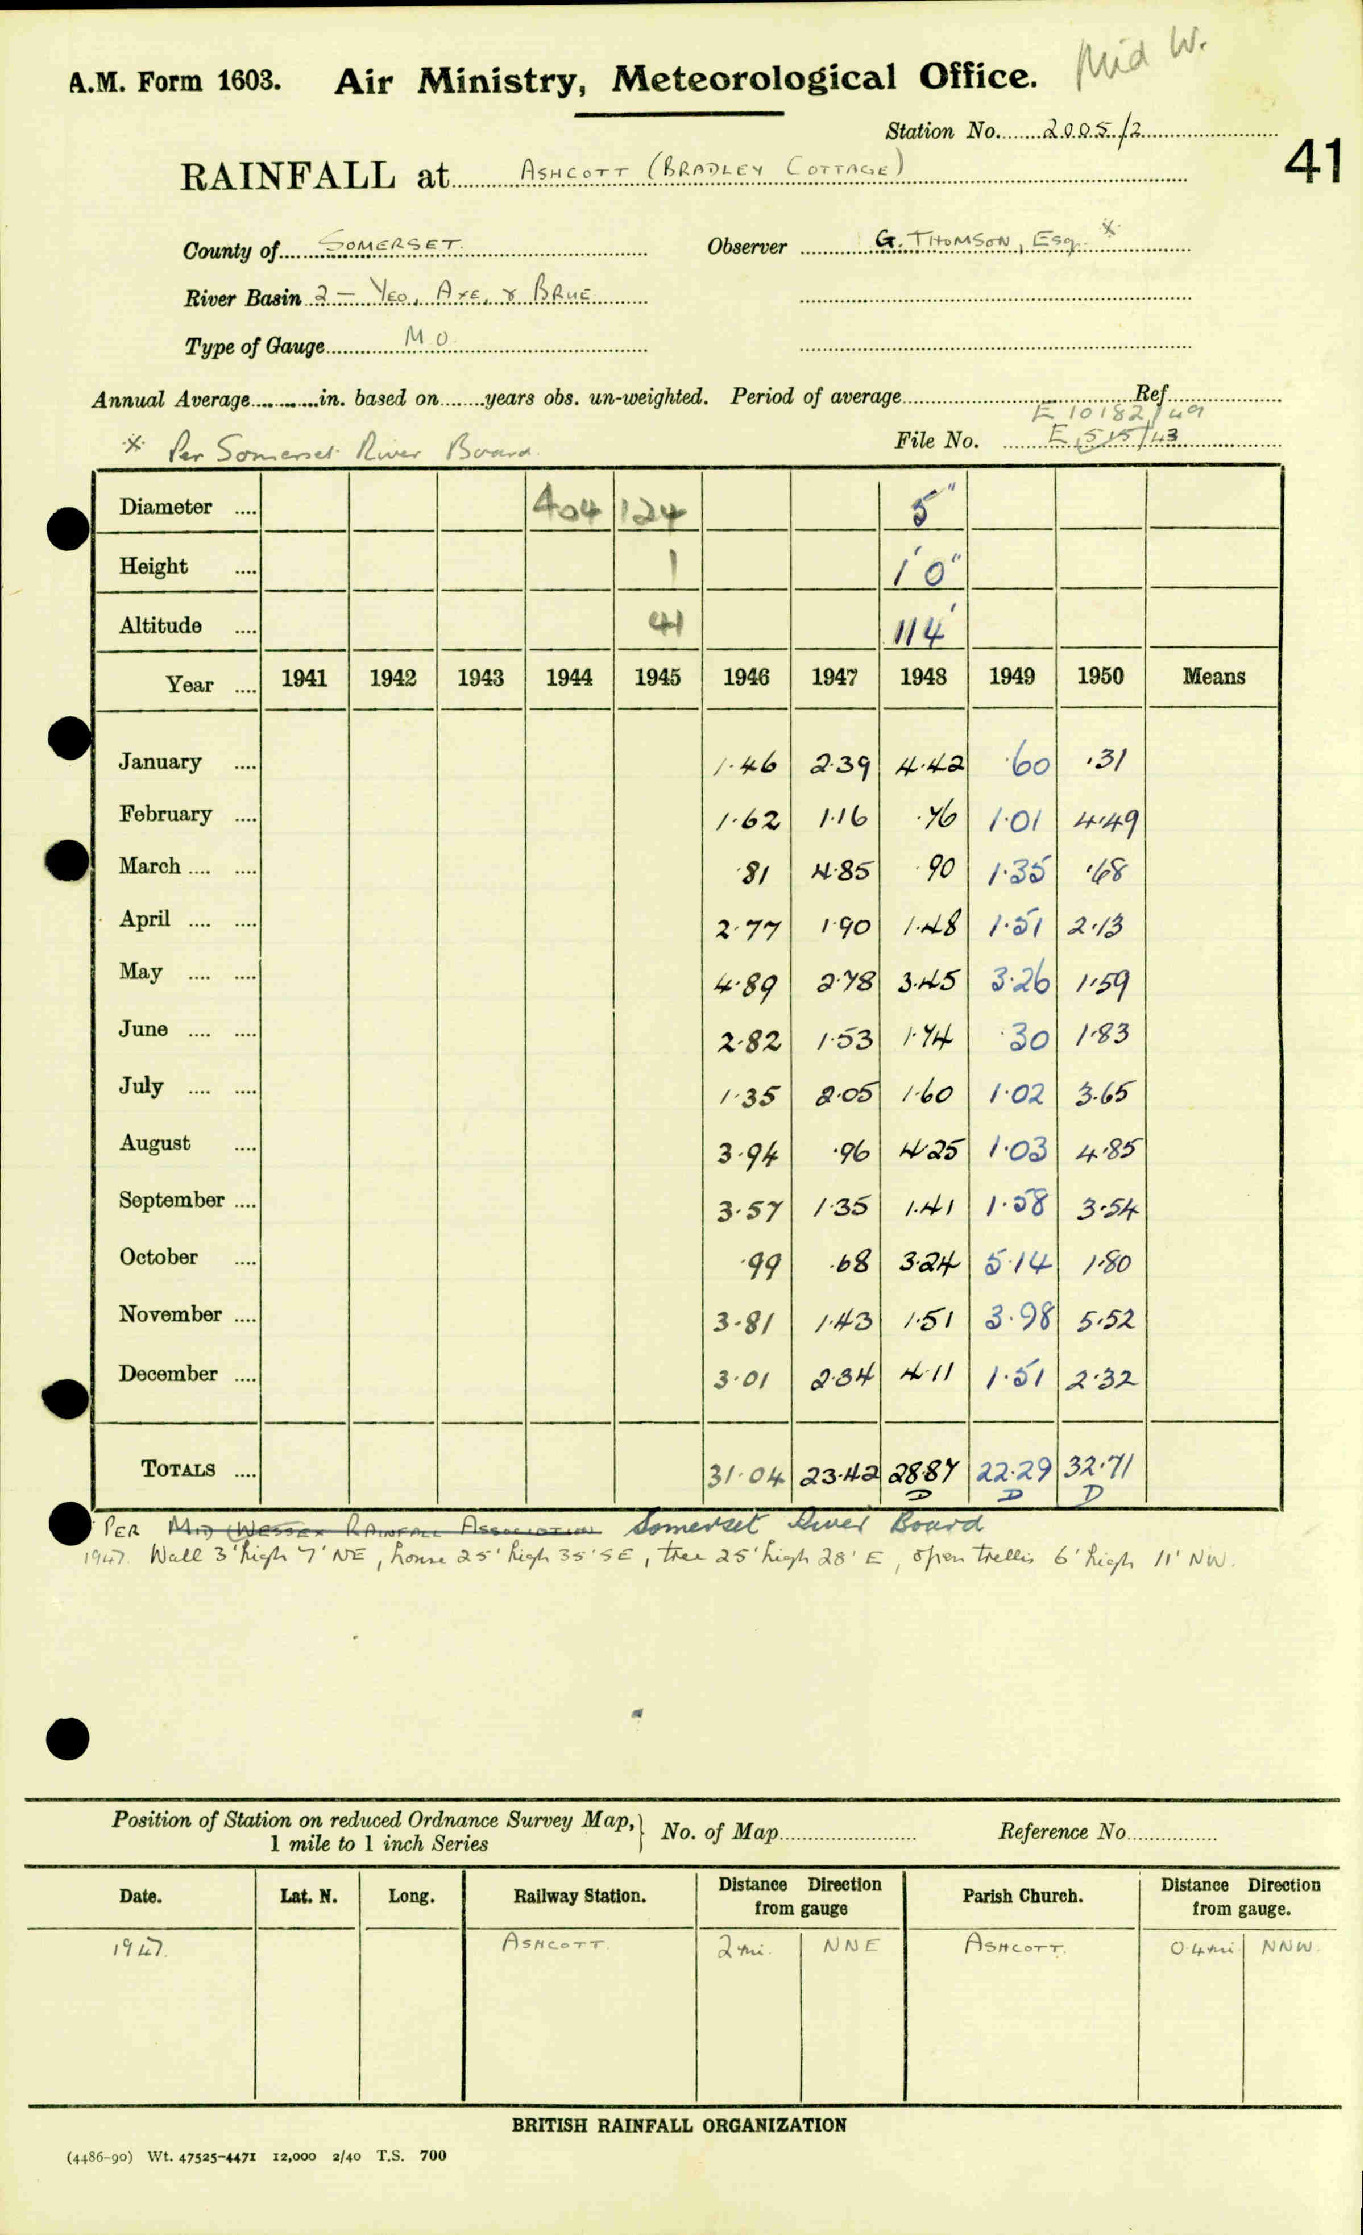 Mid W.
A.M. Form 1603. Air Ministry, Meteorological Office.
Station No. 2005/2
41
RAINFALL at ASHCOTT (BRADLEY COTTAGE)
County of SOMERSET. Observer G. THOMSON, ESQ. *
River Basin 2 - YEO, AXE, & BRUE
Type of Gauge M O
Annual Average in. based on years obs. un-weighted. Period of average Ref
E 10182/49
* Per Somerset River Board. File No. E 515/43
Diameter .... 404 124 5"
Height .... 1 1' 0"
Altitude .... 41 114'
Year .... 1941 1942 1943 1944 1945 1946 1947 1948 1949 1950 Means
January .... 1.46 2.39 4.42 .60 .31
February .... 1.62 1.16 .76 1.01 4.49
March .... .... .81 4.85 .90 1.35 .68
April .... .... 2.77 1.90 1.48 1.51 2.13
May .... .... 4.89 2.78 3.45 3.26 1.59
June .... .... 2.82 1.53 1.74 .30 1.83
July .... .... 1.35 2.05 1.60 1.02 3.65
August .... 3.94 .96 4.25 1.03 4.85
September .... 3.57 1.35 1.41 1.58 3.54
October .... .99 .68 3.24 5.14 1.80
November .... 3.81 1.43 1.51 3.98 5.52
December .... 3.01 2.34 4.11 1.51 2.32
TOTALS .... 31.04 23.42 28.87 22.29 32.71
D D D
PER MID WESSEX RAINFALL ASSOCIATION Somerset River Board
1947. Wall 3' high 7' NE, house 25' high 35' SE, tree 25' high 28' E, open trellis 6' high 11' NW.
Position of Station on reduced Ordnance Survey Map, } No. of Map Reference No
1 mile to 1 inch Series
Date. Lat. N. Long. Railway Station. Distance Direction from gauge Parish Church. Distance Direction from gauge.
1947. ASHCOTT. 2 mi. NNE ASHCOTT. 0.4 mi NNW.
BRITISH RAINFALL ORGANIZATION
(4486-90) Wt. 47525-4471 12,000 2/40 T.S. 700